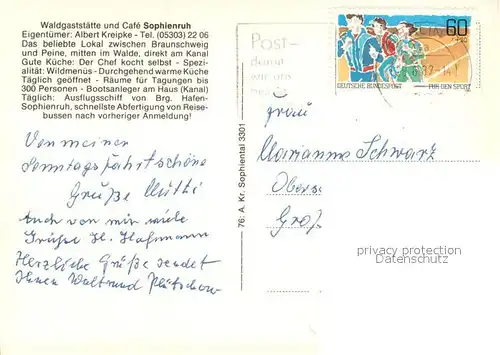 Waldgaststätte und Café Sophienruh
Eigentümer: Albert Kreipke - Tel. (05303) 22 06
Das beliebte Lokal zwischen Braunschweig
und Peine, mitten im Walde, direkt am Kanal
Gute Küche: Der Chef kocht selbst - Spezi-
alität: Wildmenus - Durchgehend warme Küche
Täglich geöffnet - Räume für Tagungen bis
300 Personen - Bootsanleger am Haus (Kanal)
Täglich: Ausflugsschiff von Brg. Hafen-
Sophienruh, schnellste Abfertigung von Reise-
bussen nach vorheriger Anmeldung!
Von meiner
Sonntagsfahrt schöne
Grüße Mutti
Auch von mir viele
Grüße H. Hofmann
Herzliche Grüße sendet
Ihnen Waltraud
76: A. Kr. Sophiental 3301
Post-
damit
wir uns
60
+30
DEUTSCHE BUNDESPOST FÜR DEN SPORT
Frau
Marianne Schwarz
Oberse
Groß
privacy protection
Datenschutz